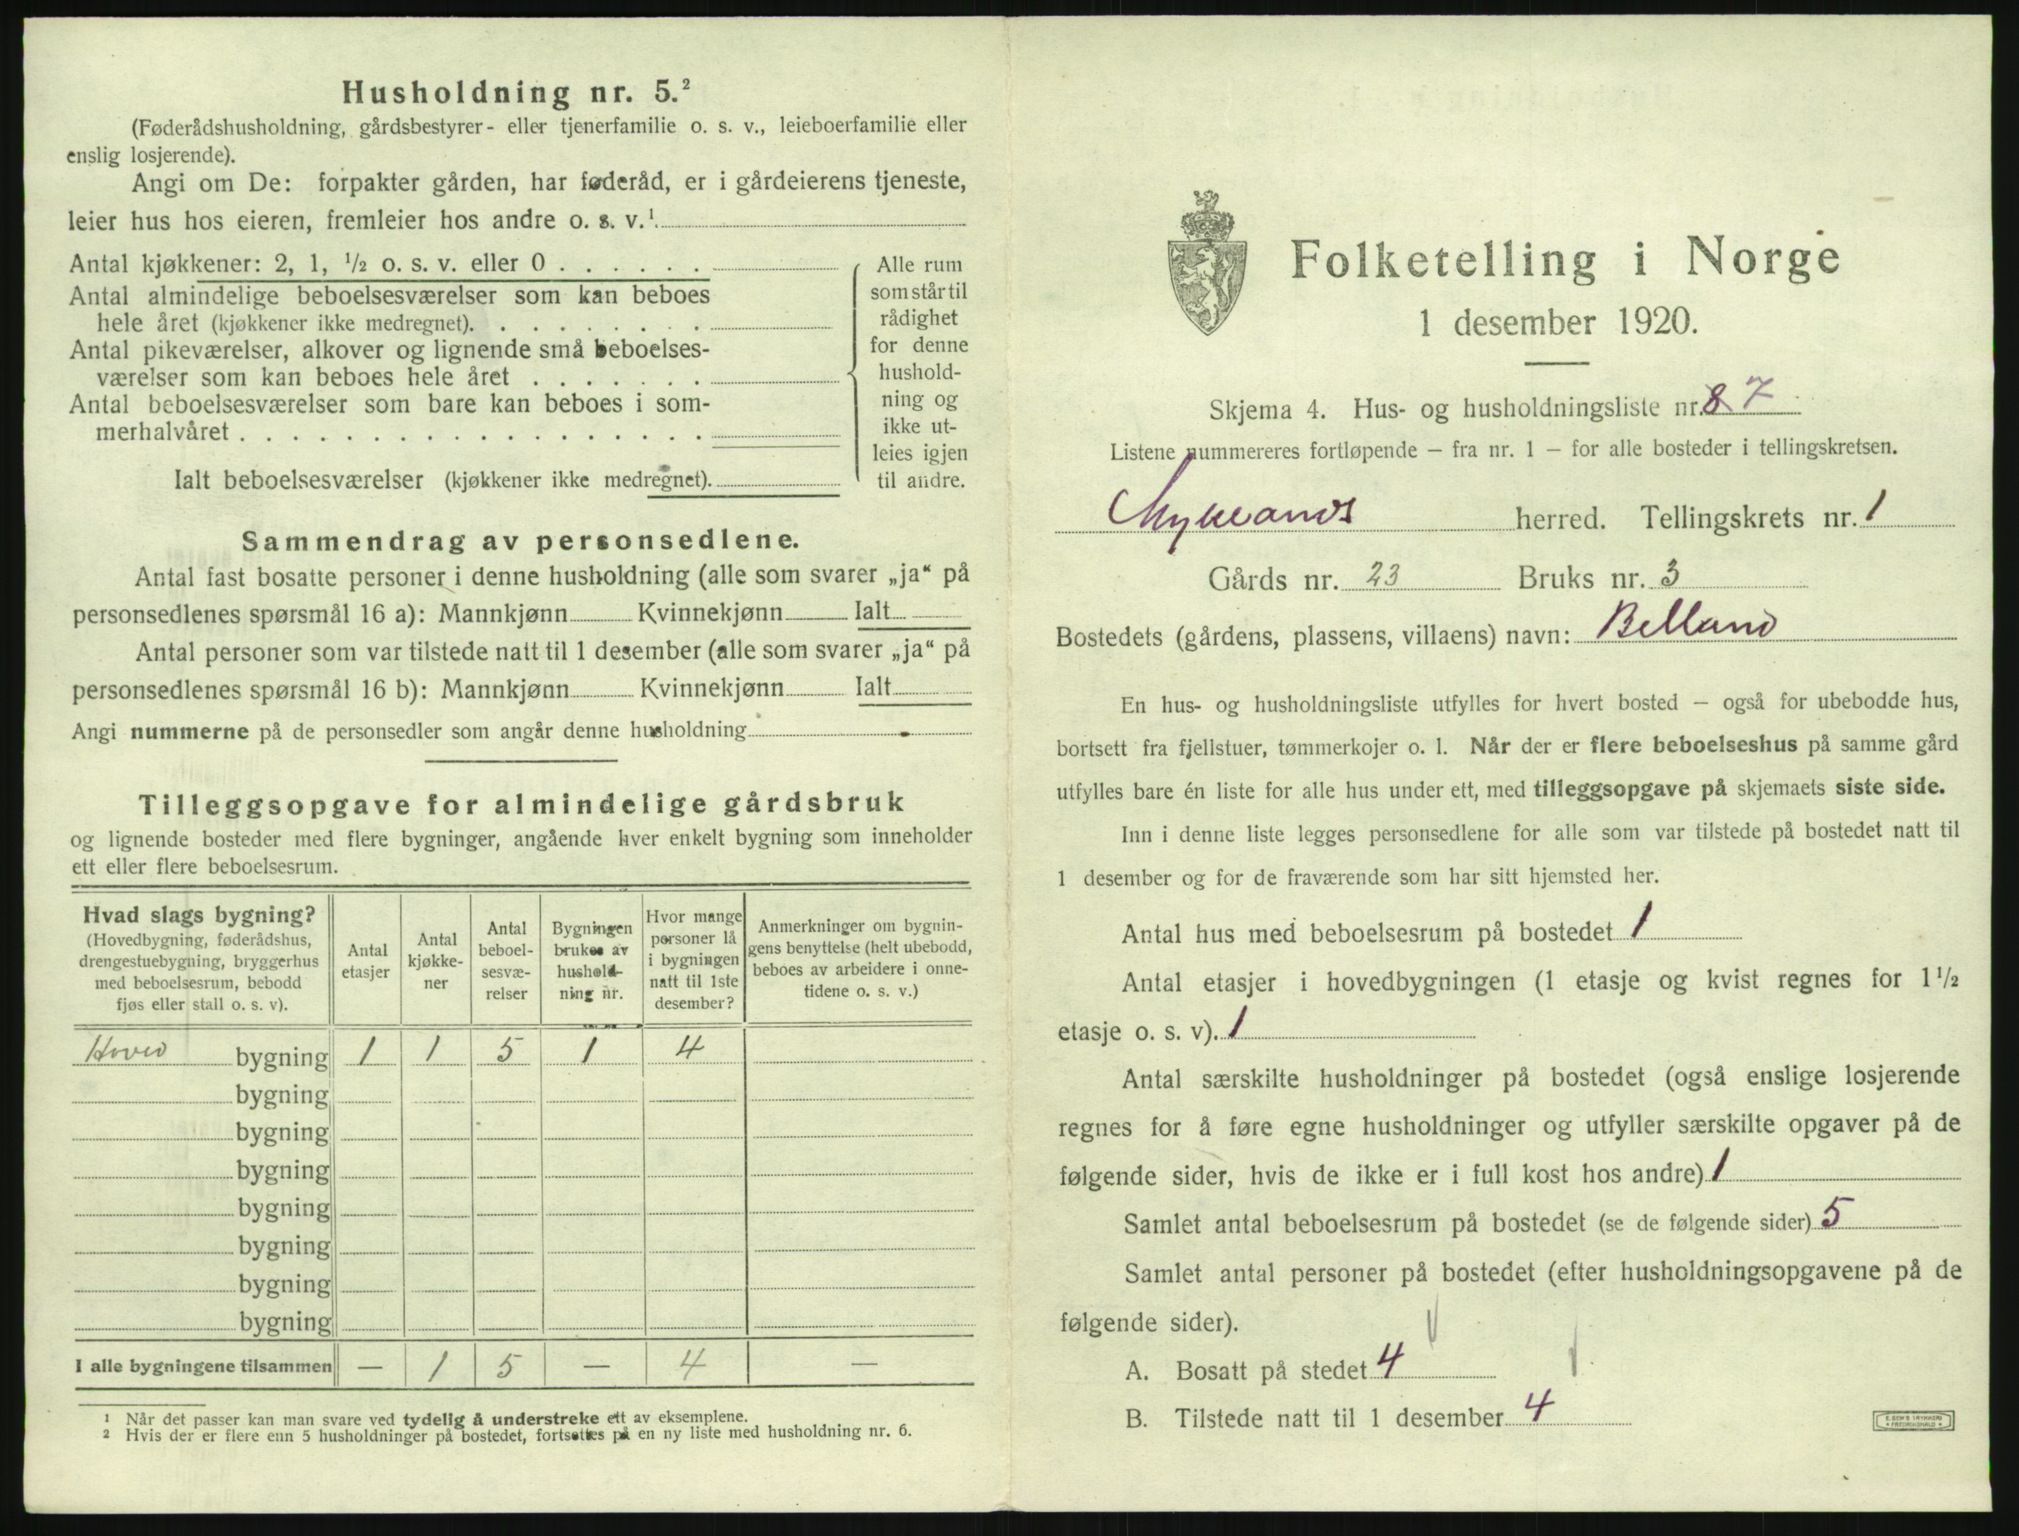 Husholdning nr. 5.²
(Føderådshusholdning, gårdsbestyrer- eller tjenerfamilie o. s. v., leieboerfamilie eller
enslig losjerende).
Angi om De: forpakter gården, har føderåd, er i gårdeierens tjeneste,
leier hus hos eieren, fremleier hos andre o. s. v.¹
Antal kjøkkener: 2, 1, ½ o. s. v. eller 0
Antal almindelige beboelsesværelser som kan beboes
hele året (kjøkkener ikke medregnet).
Antal pikeværelser, alkover og lignende små beboelses-
værelser som kan beboes hele året
Antal beboelsesværelser som bare kan beboes i som-
merhalvåret
Ialt beboelsesværelser (kjøkkener ikke medregnet).
Alle rum
som står til
rådighet
for denne
hushold-
ning og
ikke ut-
leies igjen
til andre.
Sammendrag av personsedlene.
Antal fast bosatte personer i denne husholdning (alle som svarer „ja“ på
personsedlenes spørsmål 16 a): Mannkjønn Kvinnekjønn Ialt
Antal personer som var tilstede natt til 1 desember (alle som svarer „ja“ på
personsedlenes spørsmål 16 b): Mannkjønn Kvinnekjønn Ialt
Angi nummerne på de personsedler som angår denne husholdning
Tilleggsopgave for almindelige gårdsbruk
og lignende bosteder med flere bygninger, angående hver enkelt bygning som inneholder
ett eller flere beboelsesrum.
Hvad slags bygning?
(Hovedbygning, føderådshus,
drengestuebygning, bryggerhus
med beboelsesrum, bebodd
fjøs eller stall o. s. v).
Antal
etasjer
Antal
kjøkke-
ner
Antal
beboel-
sesvæ-
relser
Bygningen
brukes av
hushold-
ning nr.
Hvor mange
personer lå
i bygningen
natt til 1ste
desember?
Anmerkninger om bygnin-
gens benyttelse (helt ubebodd,
beboes av arbeidere i onne-
tidene o. s. v.)
Hoved bygning 1 1 5 1 4
bygning
bygning
bygning
bygning
bygning
bygning
bygning
I alle bygningene tilsammen — 1 5 — 4 —
1 Når det passer kan man svare ved tydelig å understreke ett av eksemplene.
2 Hvis der er flere enn 5 husholdninger på bostedet, fortsettes på en ny liste med husholdning nr. 6.
Folketelling i Norge
1 desember 1920.
Skjema 4. Hus- og husholdningsliste nr. 8 7
Listene nummereres fortløpende — fra nr. 1 — for alle bosteder i tellingskretsen.
Myklands herred. Tellingskrets nr. 1
Gårds nr. 23 Bruks nr. 3
Bostedets (gårdens, plassens, villaens) navn: Belland
En hus- og husholdningsliste utfylles for hvert bosted — også for ubebodde hus,
bortsett fra fjellstuer, tømmerkojer o. l. Når der er flere beboelseshus på samme gård
utfylles bare én liste for alle hus under ett, med tilleggsopgave på skjemaets siste side.
Inn i denne liste legges personsedlene for alle som var tilstede på bostedet natt til
1 desember og for de fraværende som har sitt hjemsted her.
Antal hus med beboelsesrum på bostedet 1
Antal etasjer i hovedbygningen (1 etasje og kvist regnes for 1½
etasje o. s. v). 1
Antal særskilte husholdninger på bostedet (også enslige losjerende
regnes for å føre egne husholdninger og utfyller særskilte opgaver på de
følgende sider, hvis de ikke er i full kost hos andre) 1
Samlet antal beboelsesrum på bostedet (se de følgende sider) 5
Samlet antal personer på bostedet (efter husholdningsopgavene på de
følgende sider).
A. Bosatt på stedet 4
B. Tilstede natt til 1 desember 4